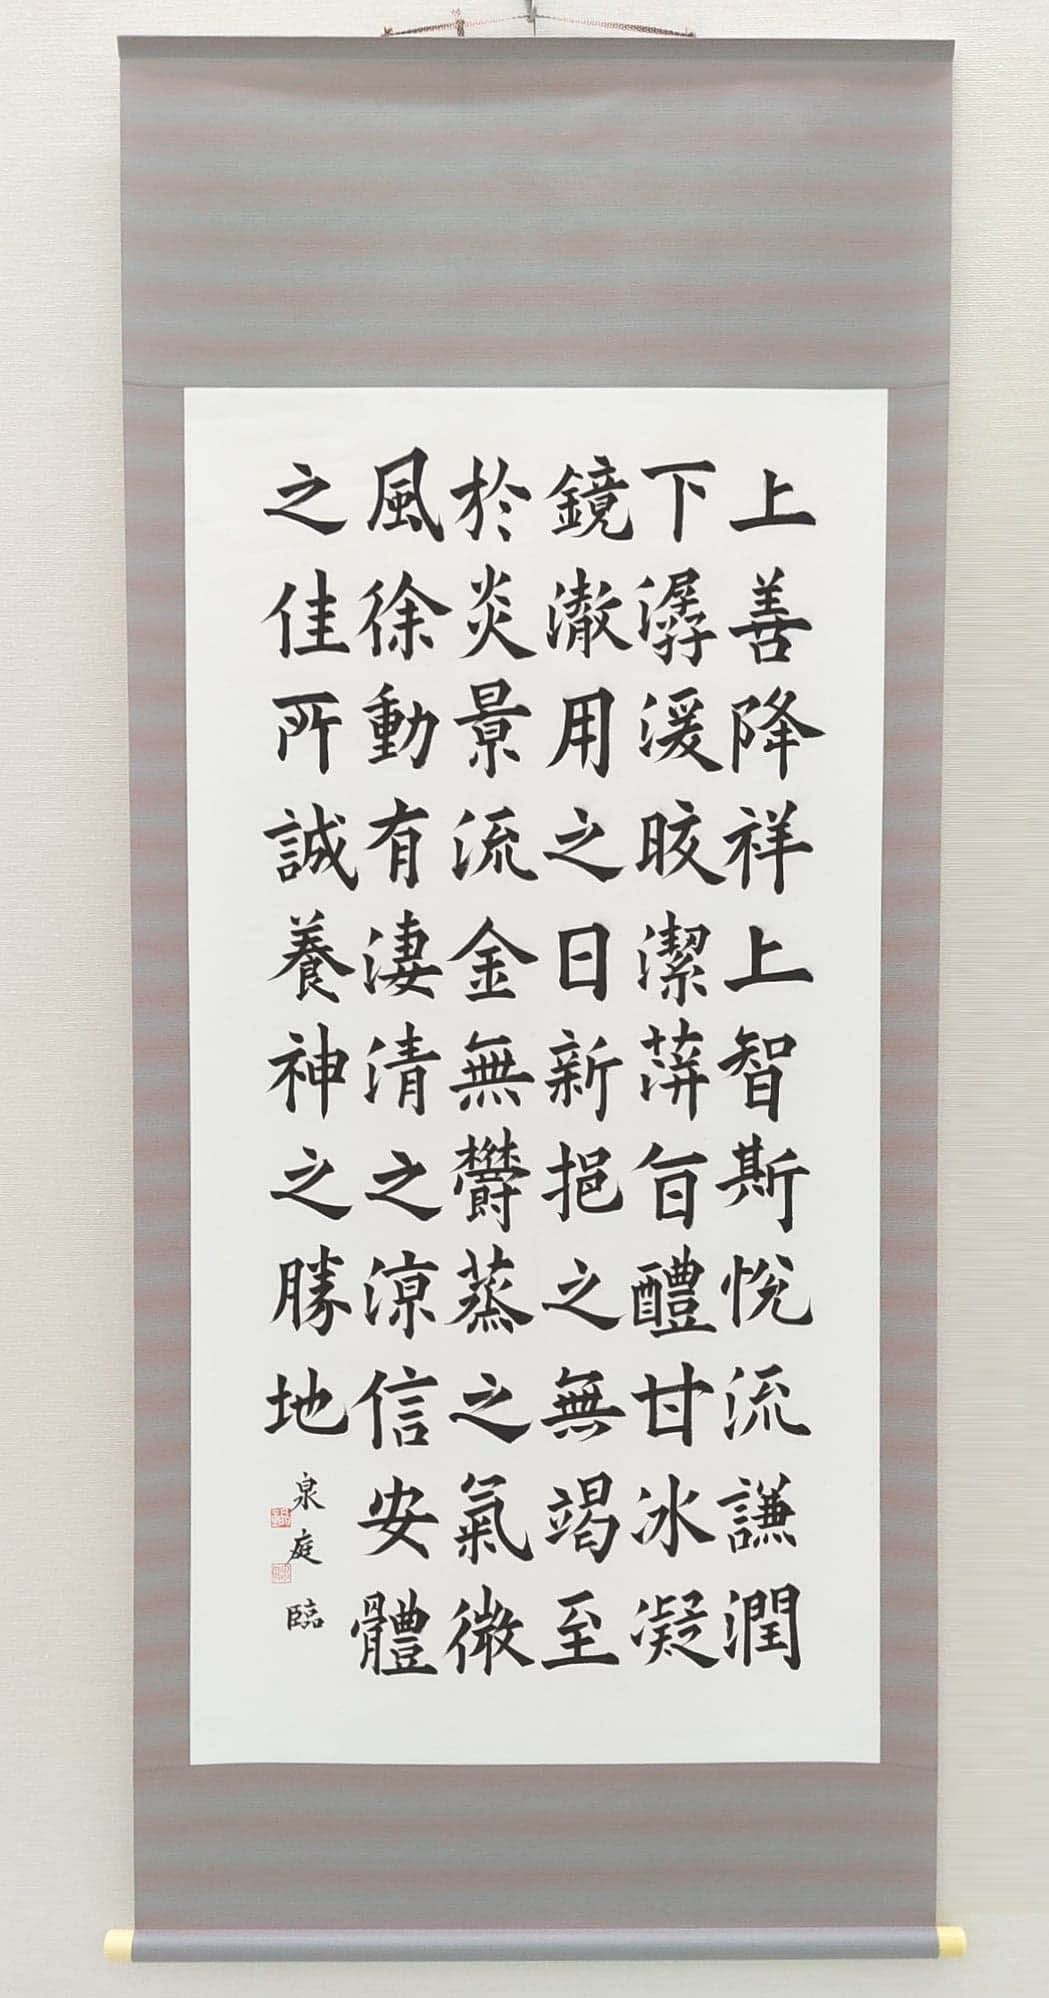 上善降祥上智斯悅流謙潤
下潺湲皎潔蓱旨醴甘冰凝
鏡澈用之日新挹之無竭至
於炎景流金無欝蒸之氣微
風徐動有淒清之涼信安體
之佳所誠養神之勝地
泉庭臨